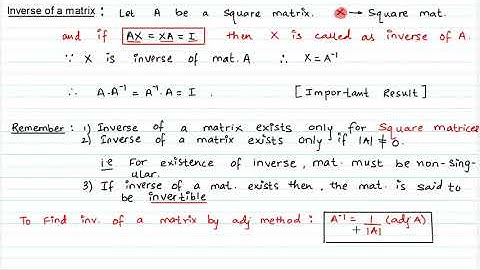 Inverse of a matrix : Let A be a square matrix. X → Square mat.
and if AX = XA = I then X is called as inverse of A.
∵ X is inverse of mat. A ∴ X = A⁻¹
∴ A·A⁻¹ = A⁻¹·A = I . [Important Result]
Remember : 1) Inverse of a matrix exists only for Square matrices
2) Inverse of a matrix exists only if |A| ≠ 0.
ie For existence of inverse, mat. must be non-sing-
ular.
3) If inverse of a mat. exists then, the mat. is said to
be invertible
To find inv. of a matrix by adj method : A⁻¹ = 1/|A| (adj A)